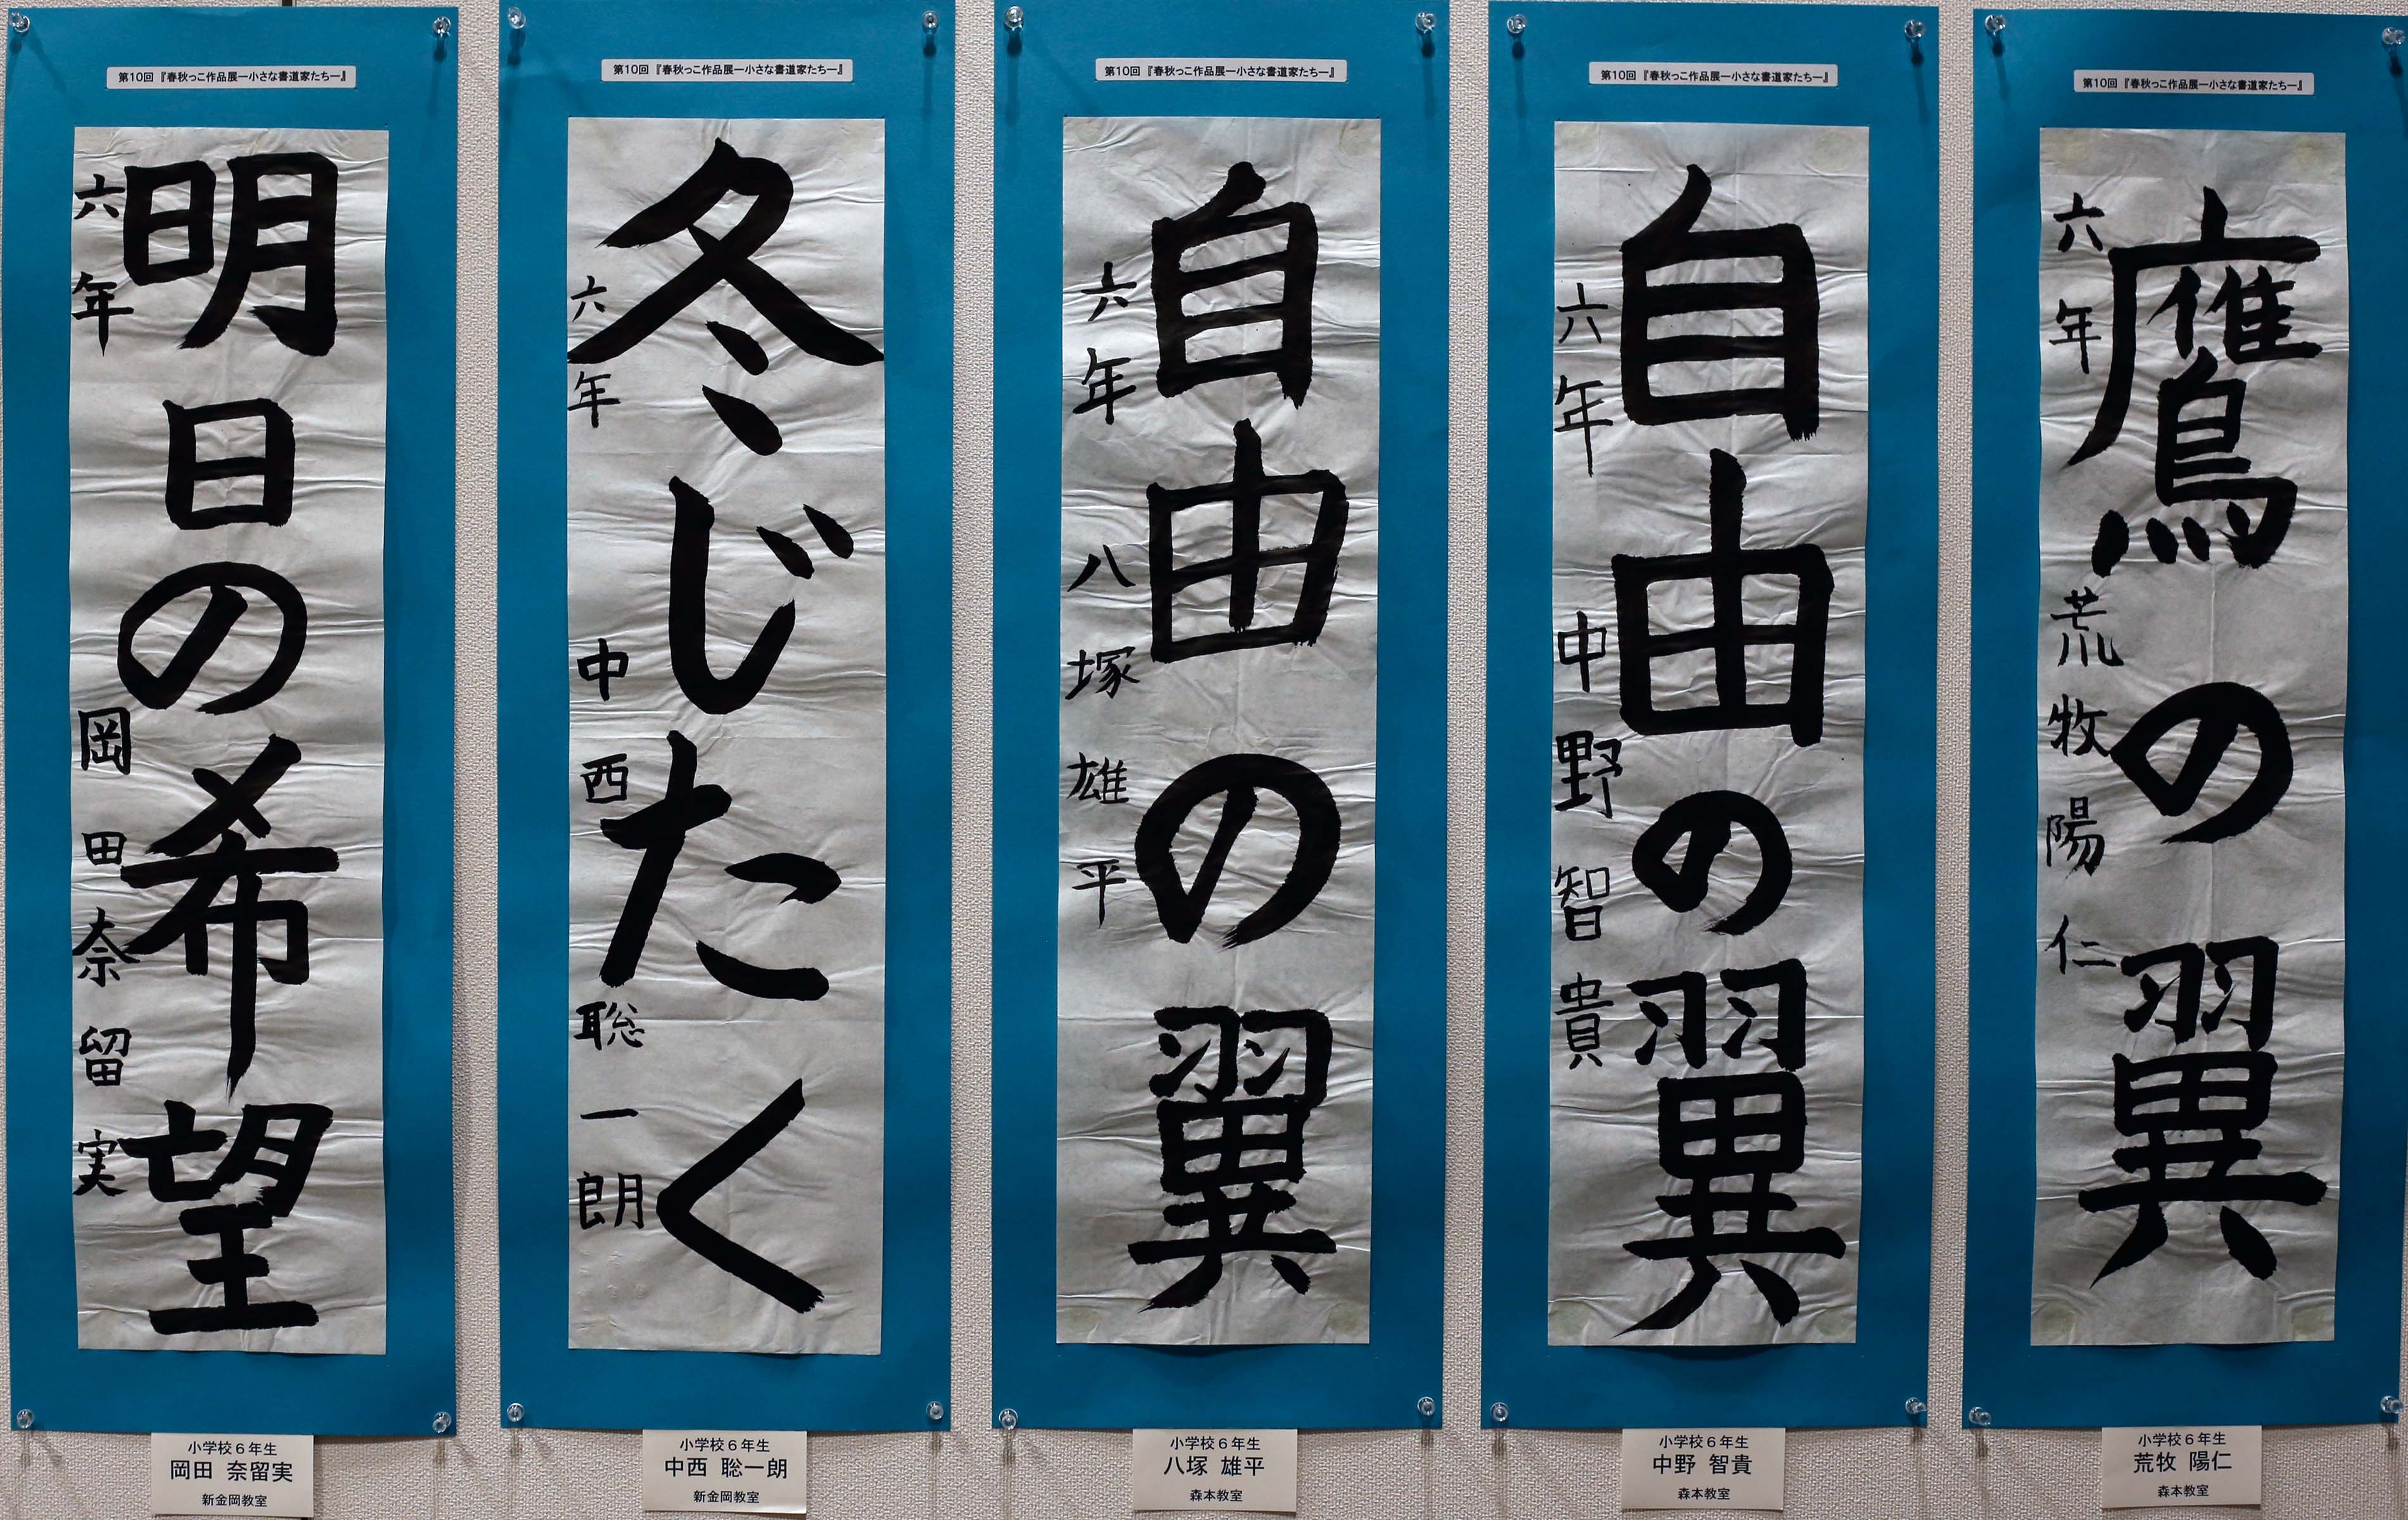 第10回『春秋っこ作品展―小さな書道家たち―』
明日の希望
六年 岡田奈留実
小学校6年生
岡田 奈留実
新金岡教室
第10回『春秋っこ作品展―小さな書道家たち―』
冬じたく
六年 中西聡一朗
小学校6年生
中西 聡一朗
新金岡教室
第10回『春秋っこ作品展―小さな書道家たち―』
自由の翼
六年 八塚雄平
小学校6年生
八塚 雄平
森本教室
第10回『春秋っこ作品展―小さな書道家たち―』
自由の翼
六年 中野智貴
小学校6年生
中野 智貴
森本教室
第10回『春秋っこ作品展―小さな書道家たち―』
鷹の翼
六年 荒牧陽仁
小学校6年生
荒牧 陽仁
森本教室